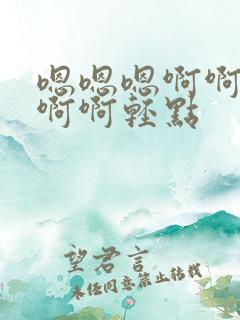 嗯嗯嗯啊啊
啊啊轻點
望君言
未经同意禁止转载